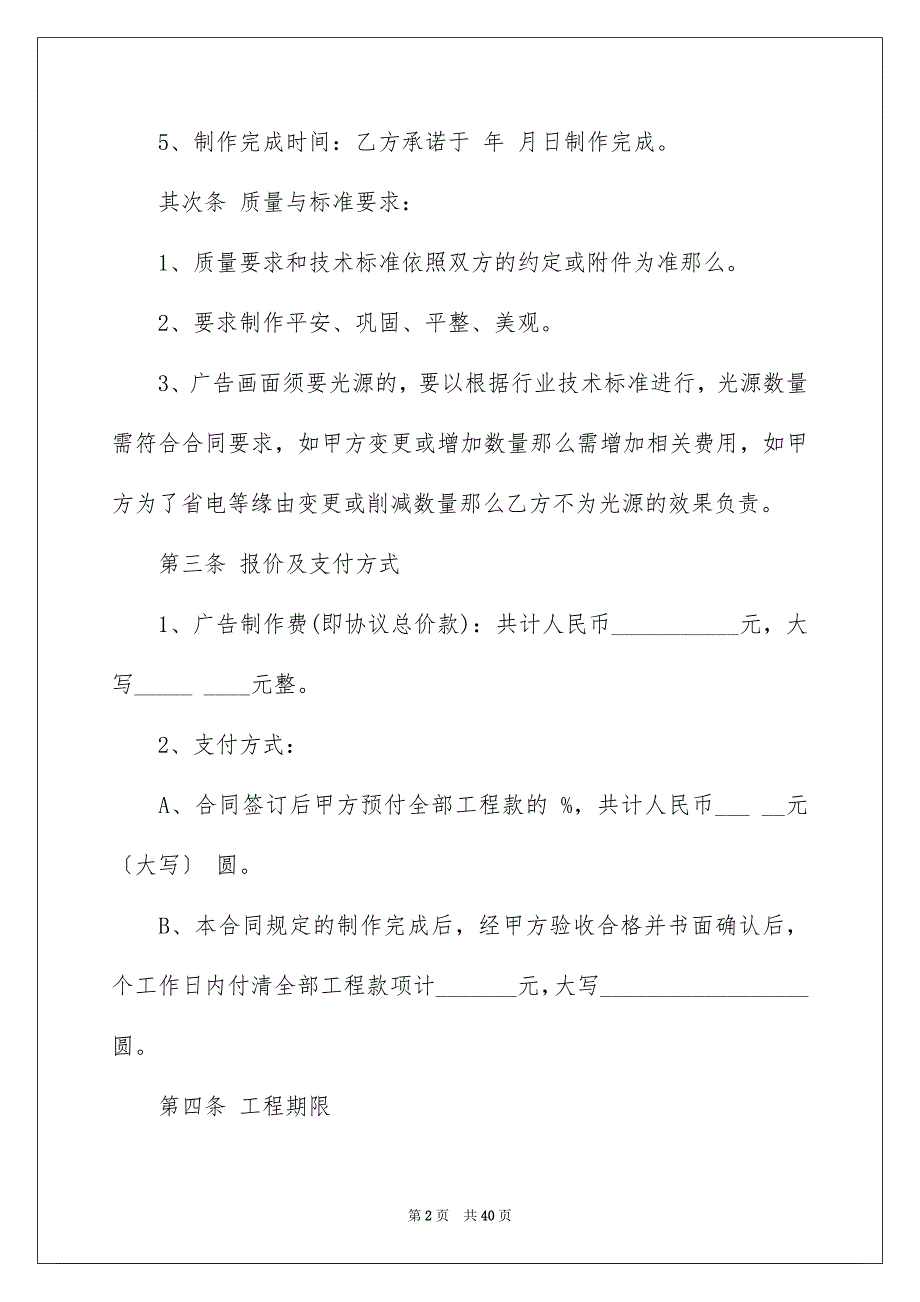 5、制作完成时间：乙方承诺于 年 月日制作完成。
其次条 质量与标准要求：
1、质量要求和技术标准依照双方的约定或附件为准那么。
2、要求制作平安、巩固、平整、美观。
3、广告画面须要光源的，要以根据行业技术标准进行，光源数量
需符合合同要求，如甲方变更或增加数量那么需增加相关费用，如甲
方为了省电等缘由变更或削减数量那么乙方不为光源的效果负责。
第三条 报价及支付方式
1、广告制作费(即协议总价款)：共计人民币___________元，大
写_____ ____元整。
2、支付方式：
A、合同签订后甲方预付全部工程款的 %，共计人民币___ __元
〔大写〕 圆。
B、本合同规定的制作完成后，经甲方验收合格并书面确认后，
个工作日内付清全部工程款项计_______元，大写__________________
圆。
第四条 工程期限
第 2 页 共 40 页